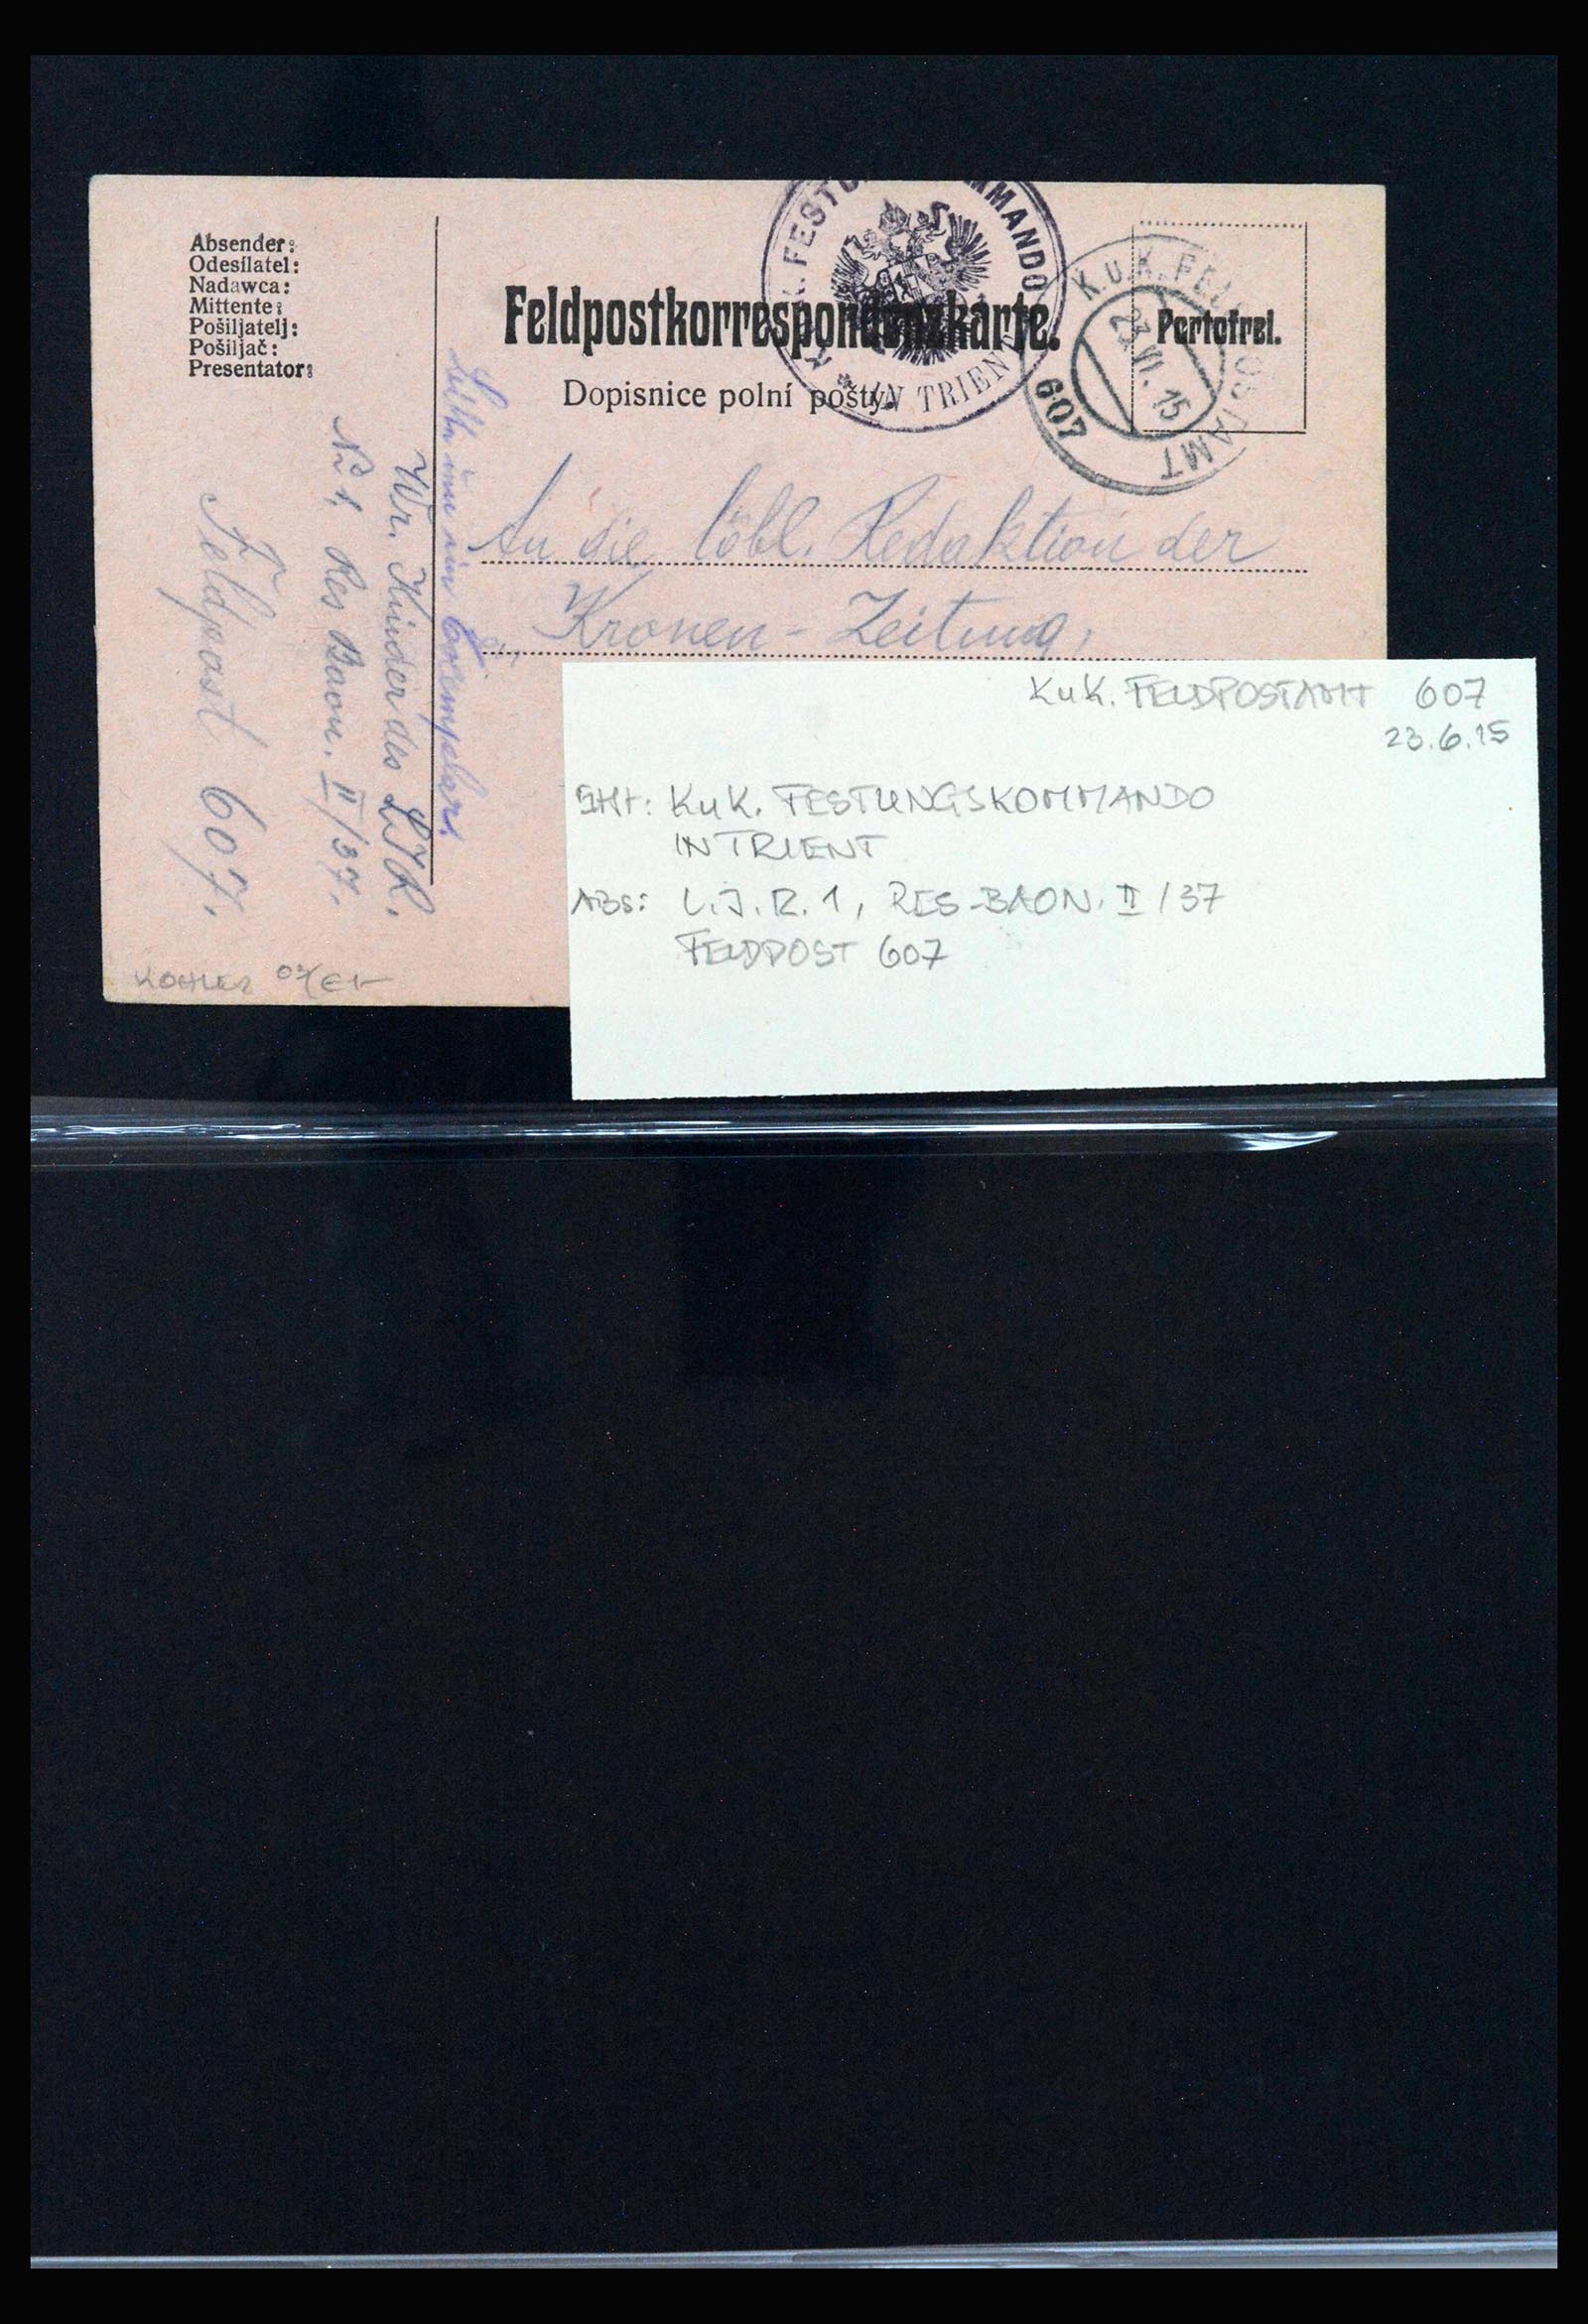 Absender:
Odesílatel:
Nadawca:
Mittente:
Pošiljatelj:
Pošiljač:
Presentator:
Feldpostkorrespondenzkarte.
Dopisnice polní pošty.
Portofrei.
FESTU MMANDO
IN TRIENT
K.u.K. FELDPOSTAMT
607
23.VI.15
An die löbl. Redaktion der
Kronen-Zeitung,
Bitte um ein Exemplar.
Wr. Kinder des L.I.R.
No 1, Res Baon. II/37.
Feldpost 607.
KuK. FELDPOSTAMT 607
23.6.15
KuK. FESTUNGSKOMMANDO
IN TRIENT
ABS: L.I.R. 1, RES-BAON. II/37
FELDPOST 607